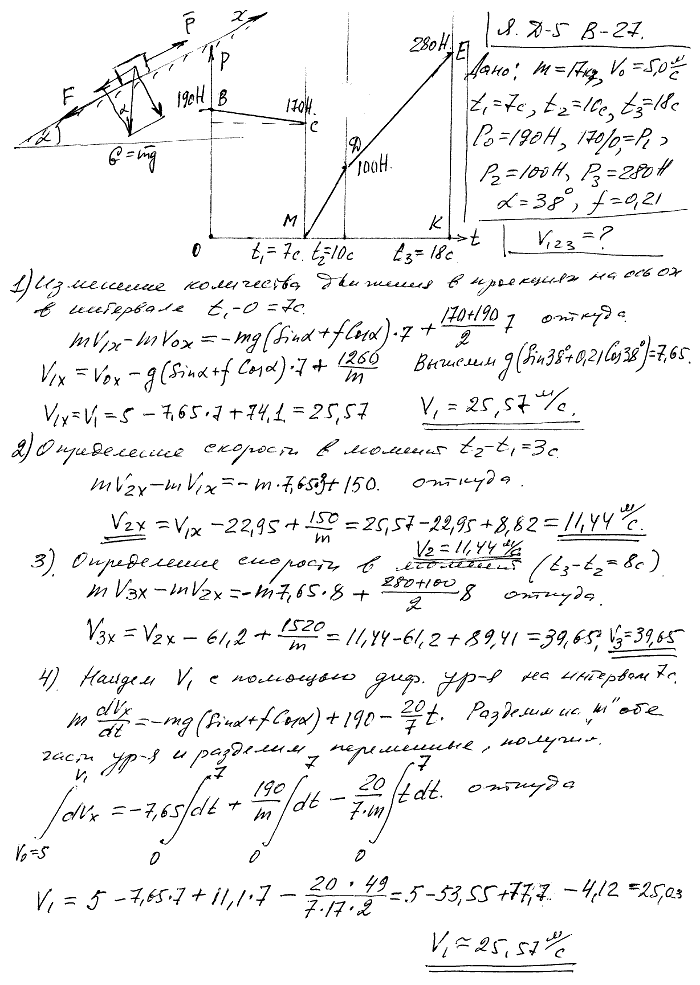 Я. Д-5 В-27.
Дано: m=17кг, V₀=5,0 м/с
t₁=7с, t₂=10с, t₃=18с
P₀=190Н, 170/0=P₁,
P₂=100Н, P₃=280Н
α=38°, f=0,21
V₁₂₃=?
P̄
x
P
F
α
α
G=mg
190Н
B
170Н.
C
280Н
E
D
100Н.
M
K
O
t₁=7с.
t₂=10с
t₃=18с.
t
1) Изменение количества движения в проекциях на ось ox
в интервале t₁-0=7с.
mV₁ₓ-mV₀ₓ=-mg(Sinα+fCosα)·7+(170+190)/2 7 откуда.
V₁ₓ=V₀ₓ-g(Sinα+fCosα)·7+1260/m Вычислим g(Sin38°+0,21Cos38°)=7,65.
V₁ₓ=V₁=5-7,65·7+74,1=25,57 V₁=25,57 м/с.
2) Определение скорости в момент t₂-t₁=3с.
mV₂ₓ-mV₁ₓ=-m·7,65·3+150. откуда.
V₂ₓ=V₁ₓ-22,95+150/m=25,57-22,95+8,82=11,44 м/с.
V₂=11,44 м/с
3). Определение скорости в момент (t₃-t₂=8с).
mV₃ₓ-mV₂ₓ=-m7,65·8+(280+100)/2 8 откуда.
V₃ₓ=V₂ₓ-61,2+1520/m=11,44-61,2+89,41=39,65; V₃=39,65
4). Найдем V₁ с помощью диф. ур-я на интервале 7с.
m dVₓ/dt=-mg(Sinα+fCosα)+190-20/7 t. Разделим на "m" обе
части ур-я и разделим переменные, получим.
∫(V₀=5)^(V₁) dVₓ=-7,65∫₀⁷dt+190/m∫₀⁷dt-20/(7·m)∫₀⁷tdt. откуда
V₁=5-7,65·7+11,1·7-(20·49)/(7·17·2)=5-53,55+77,7-4,12=25,03
V₁≈25,57 м/с